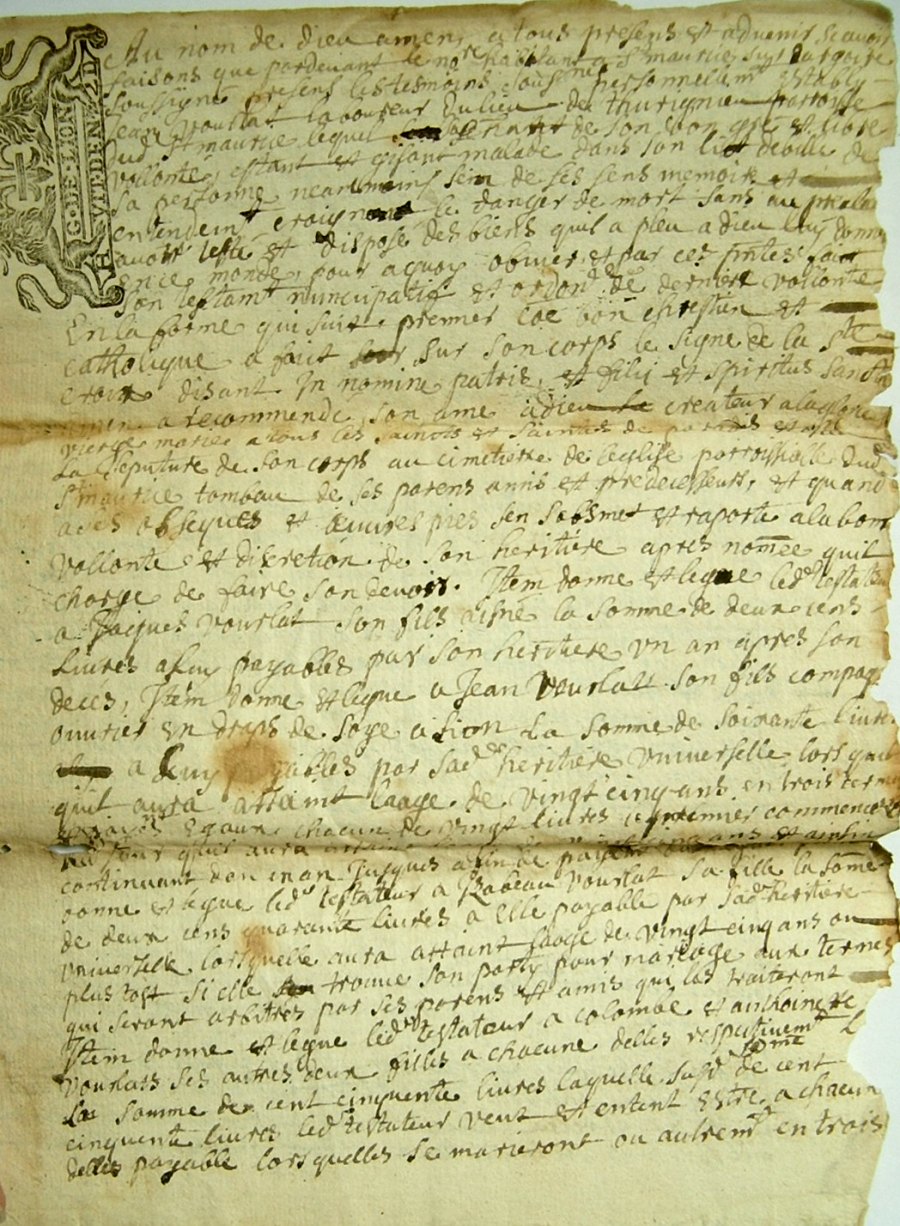 G. DE LION
HVIT DEN
Au nom de dieu amen, a tous presens et advenir scavoir
faisons que pardevant le no.re habitant a St maurice sur dargoire
soussigné presens les tesmoins sousnes personnellemt estably
Jean vourlat laboureur du lieu de thurignieu parroisse
dud. St maurice lequel de son bon gré et libre
vollonté, estant et gisant malade dans son lict de
sa personne neantmoins sein de ses sens memoire et
entendemt croignant le danger de mort sans au prealable
avoir testé et disposé des biens quil a pleu a dieu luy donne
en ce monde, pour aquoy obvier et par ces pntes fait
son testamt nuncupatif et ordonce de derniere vollonté
En la forme qui suit, premier coe bon chrestien et
catholique a faict sur son corps le signe de la ste
croix disant In nomine patris, et filii et spiritus sancti
amen a recommendé son ame a dieu le createur a la glorieuse
vierge marie a tous les saincts et sainctes de paradis et esleu
La sepulture de son corps au cimetiere de leglise parroissialle dud.
St maurice tombau de ses parens amis et predecesseurs, et quand
a ses obseques et œuvres pies sen sobsmet et raporte a la bonne
vollonté et discretion de son heritiere apres nomée quil
charge de faire son devoir. Item donne et legue led. testateur
a Jaques vourlat son fils aisné la somme de deux cens
Livres a luy payables par son heritiere un an apres son
deces, Item donne et legue a Jean Vourlat son fils compag.
ouvrier en draps de soye a lion La somme de soixante livres
a Luy payables par sad. heritiere universelle lors quil
quil aura attaint laage de vingt cinq ans en trois termes
Egaux chacun de vingt livres le premier commencera
jour quil aura attaint ans et ainsin
continuant dan en an jusques a fin de payement
donne et legue led. testateur a Izabeau vourlat sa fille la some
de deux cens quarante livres a elle payable par sad. heritiere
universelle lorsquelle aura attaint laage de vingt cinq ans ou
plus tost si elle trouve son party pour mariage aux termes
qui seront arbitres par ses parens et amis qui les traiteront
Item donne et legue led. testateur a colombe et anthoinette
vourlats ses autres deux filles a chacune delles respectivemt
La somme de cent cinquente livres laquelle susd. some de cent
cinquente livres led. testateur veut et entent estre a chacune
delles payable lors quelles se marieront ou autremt en trois